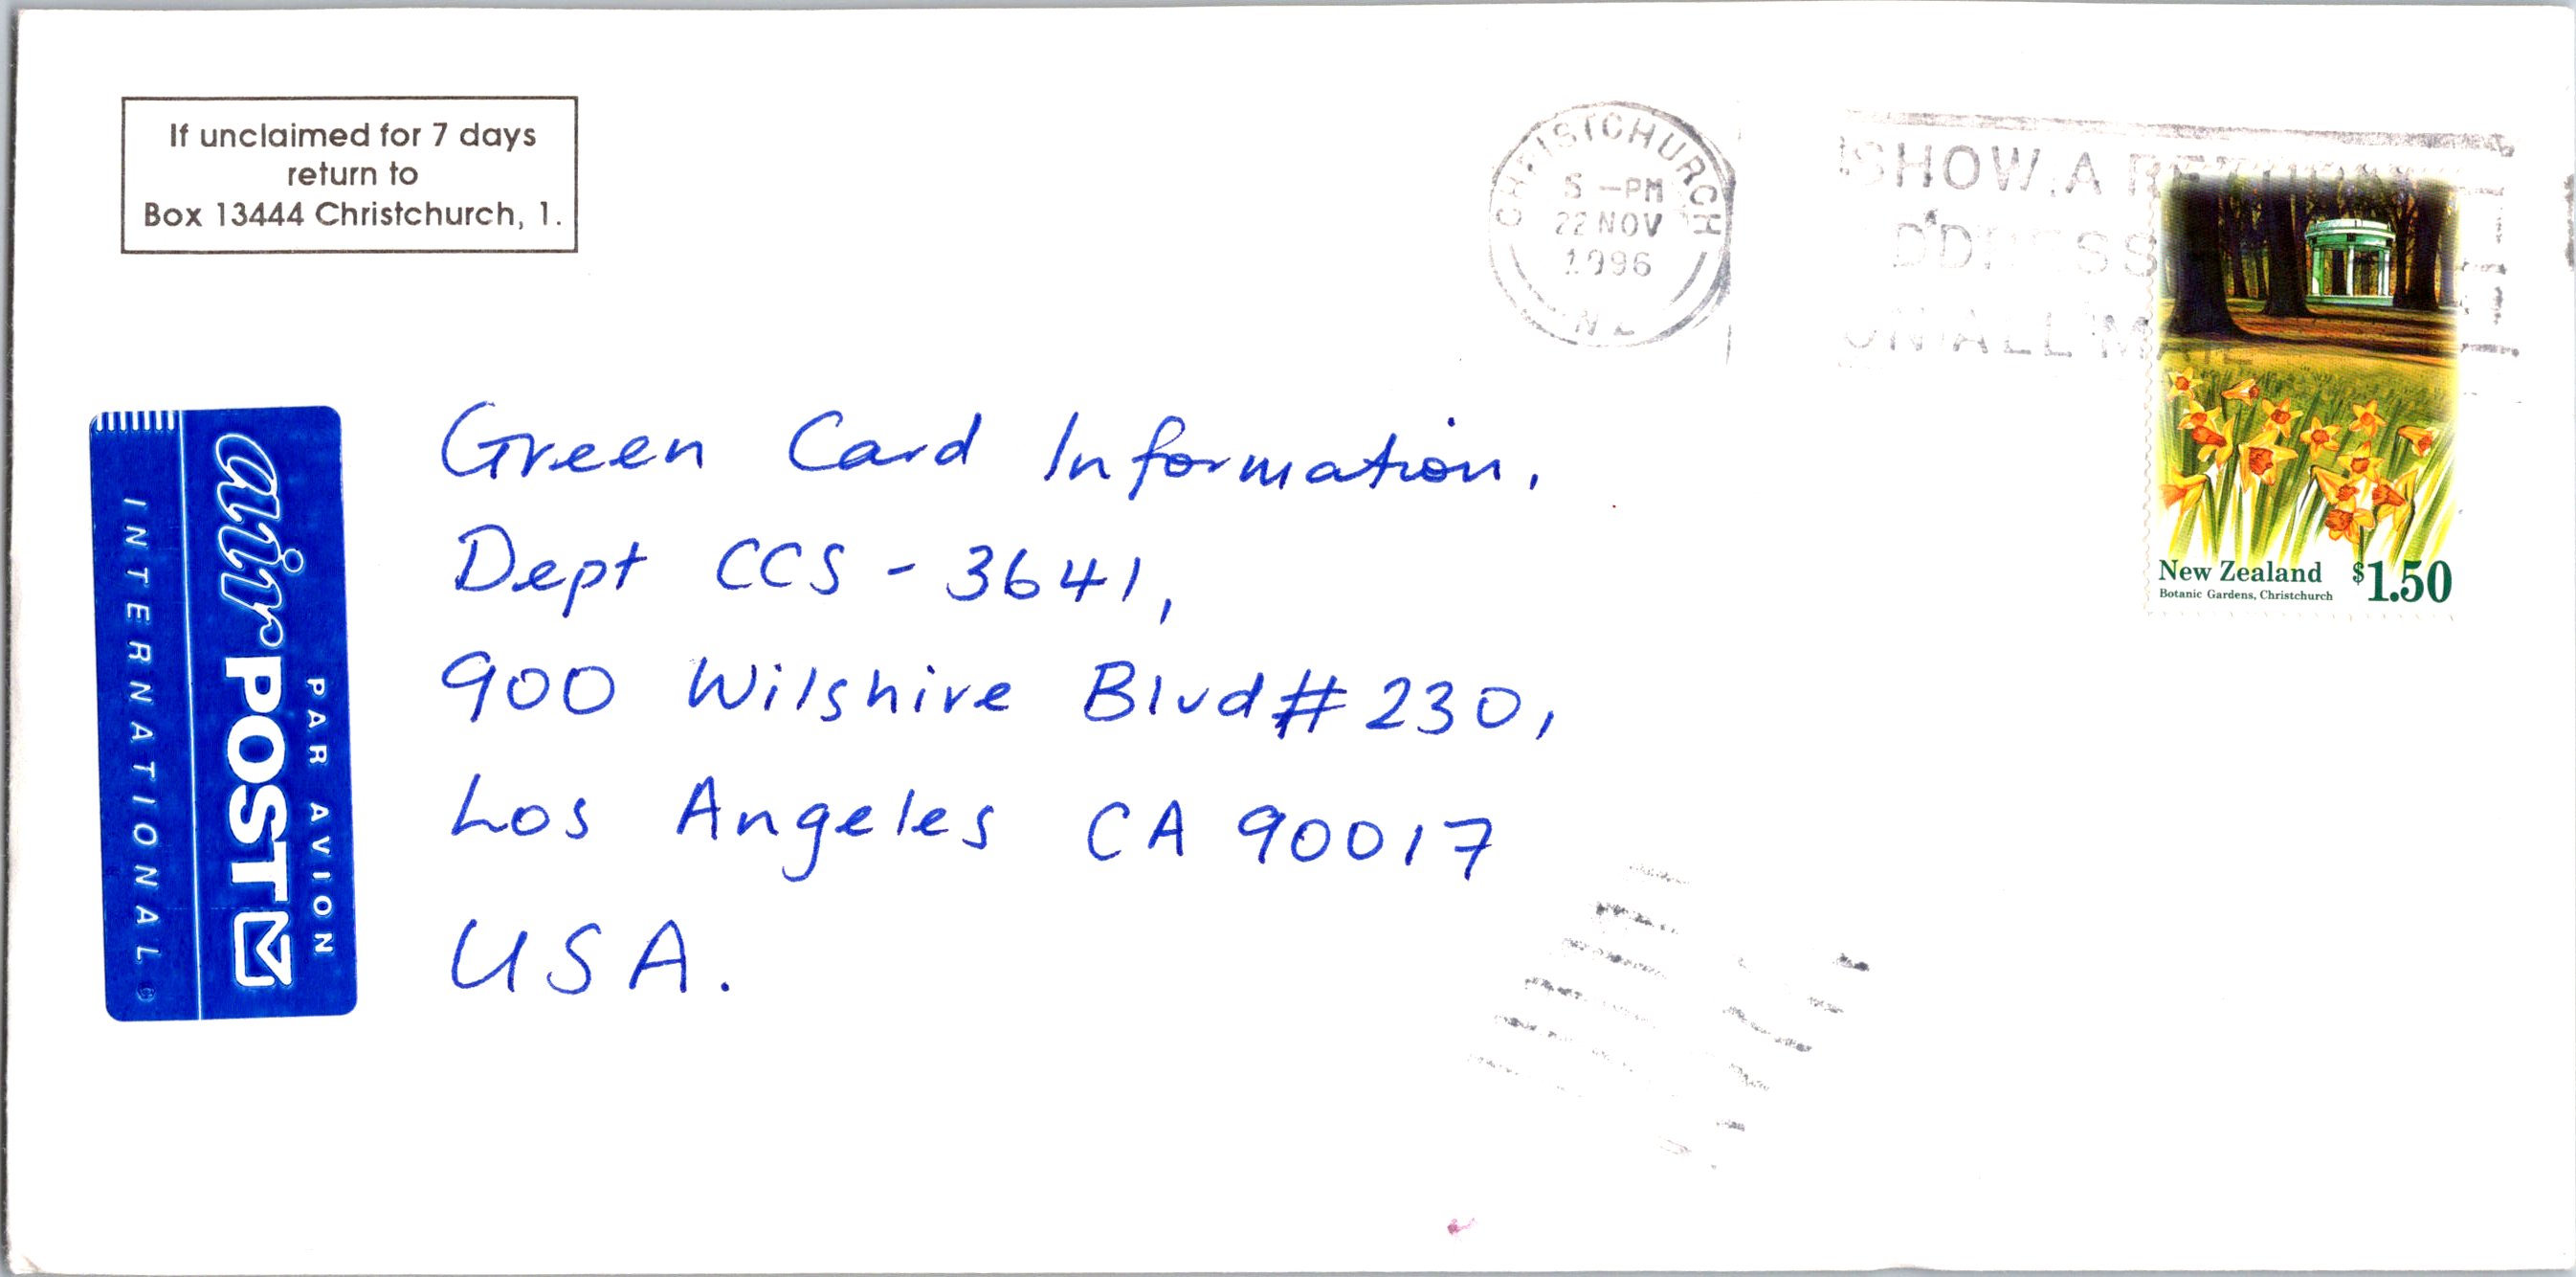 If unclaimed for 7 days
return to
Box 13444 Christchurch, 1.
CHRISTCHURCH
5 -PM
22 NOV
1996
NZ
SHOW A RETURN
ADDRESS
ON ALL MAIL
New Zealand $1.50
Botanic Gardens, Christchurch
INTERNATIONAL
air POST
PAR AVION
Green Card Information,
Dept CCS - 3641,
900 Wilshire Blvd # 230,
Los Angeles CA 90017
USA.